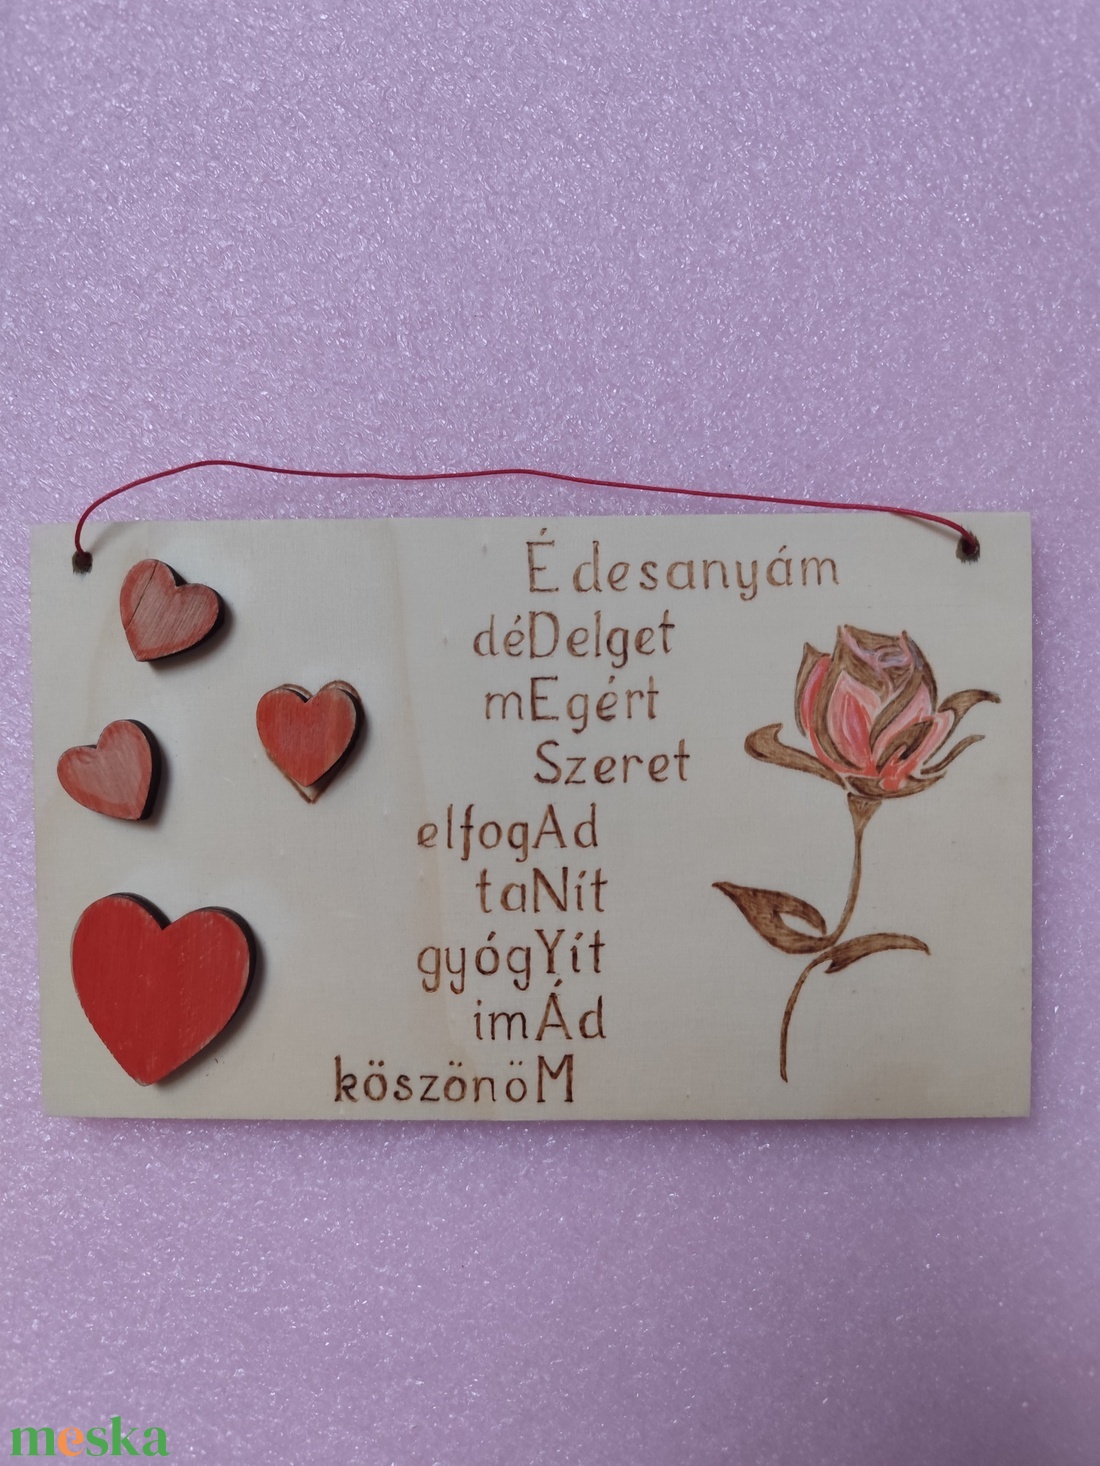 Édesanyám
déDelget
mEgért
Szeret
elfogAd
taNít
gyógYít
imÁd
köszönöM
meska